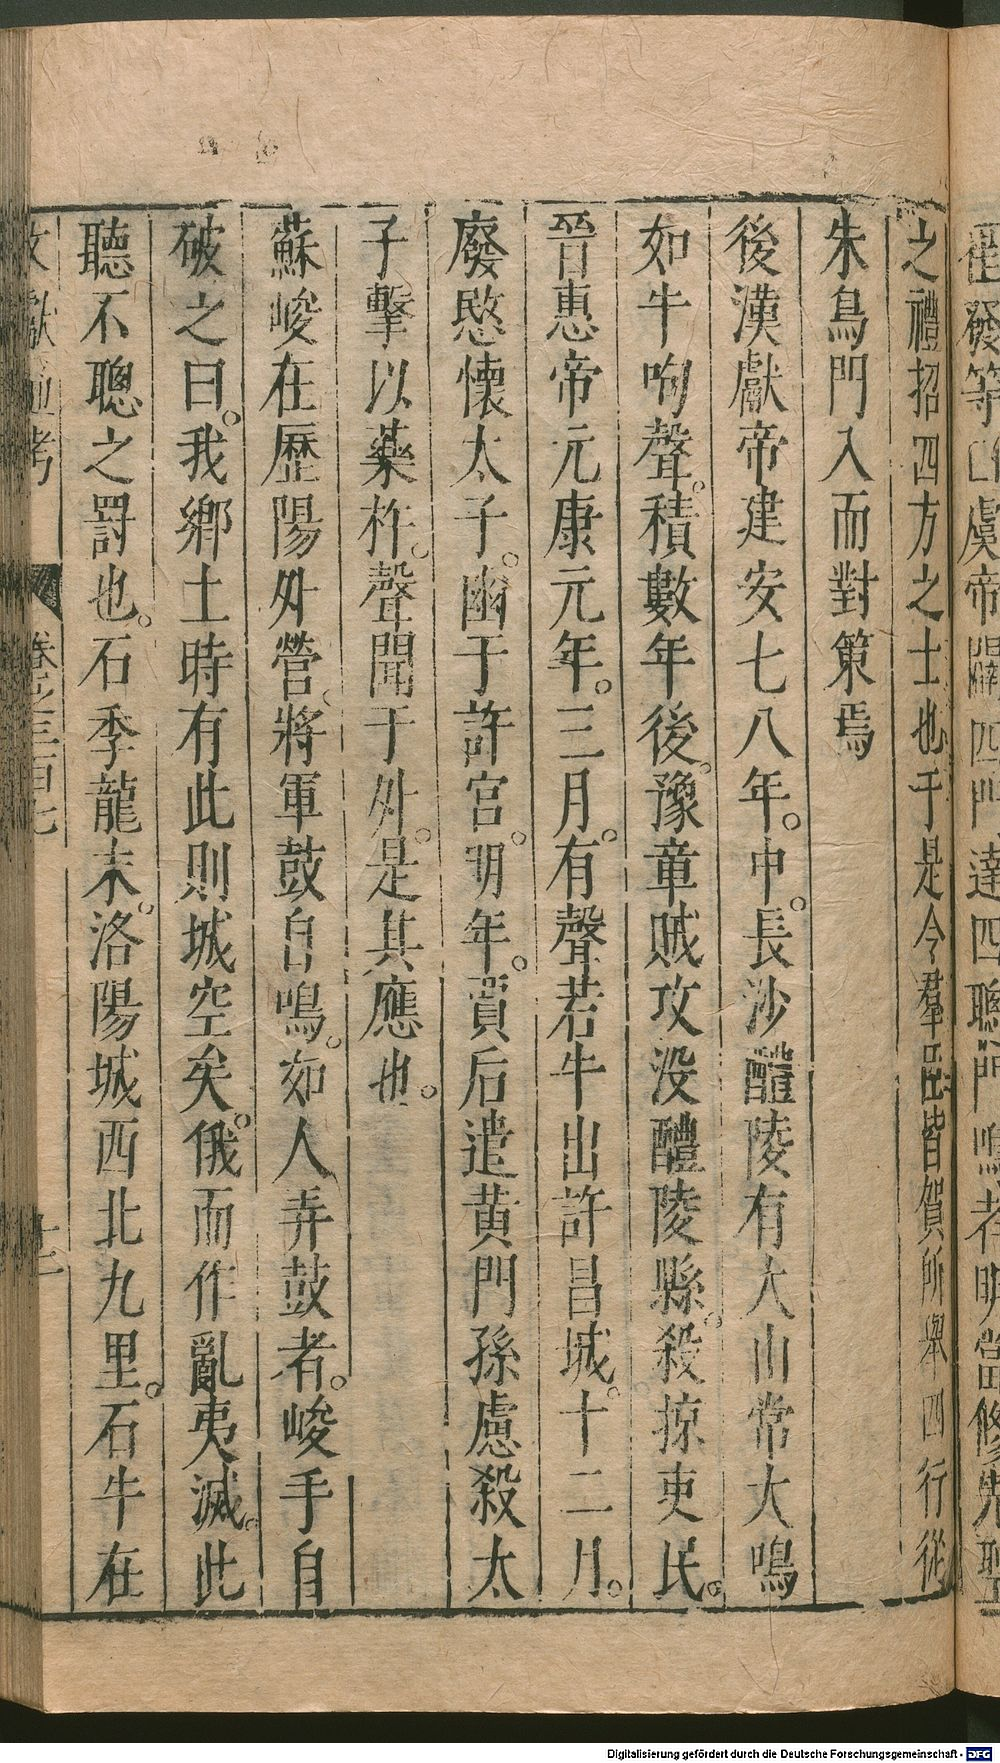 崔發等曰虞帝闢四門達四聰門鳴者明當修先聖
之禮招四方之士也于是令羣臣皆賀所舉四行從
朱鳥門入而對策焉
後漢獻帝建安七八年。中。長沙醴陵有大山常大鳴
如牛呴聲。積數年後。豫章賊攻没醴陵縣。殺掠吏民。
晉惠帝元康元年。三月。有聲若牛出許昌城。十二月。
廢愍懷太子。幽于許宫。明年。賈后遣黄門孫慮殺太
子擊以藥杵。聲聞于外。是其應也。
蘇峻在歷陽外營。將軍鼓自鳴。如人弄鼓者。峻手自
破之曰。我鄉土時有此則城空矣。俄而作亂夷滅。此
聽不聰之罰也。石季龍末。洛陽城西北九里。石牛在
文獻通考 卷之三百七 十二
Digitalisierung gefördert durch die Deutsche Forschungsgemeinschaft - DFG